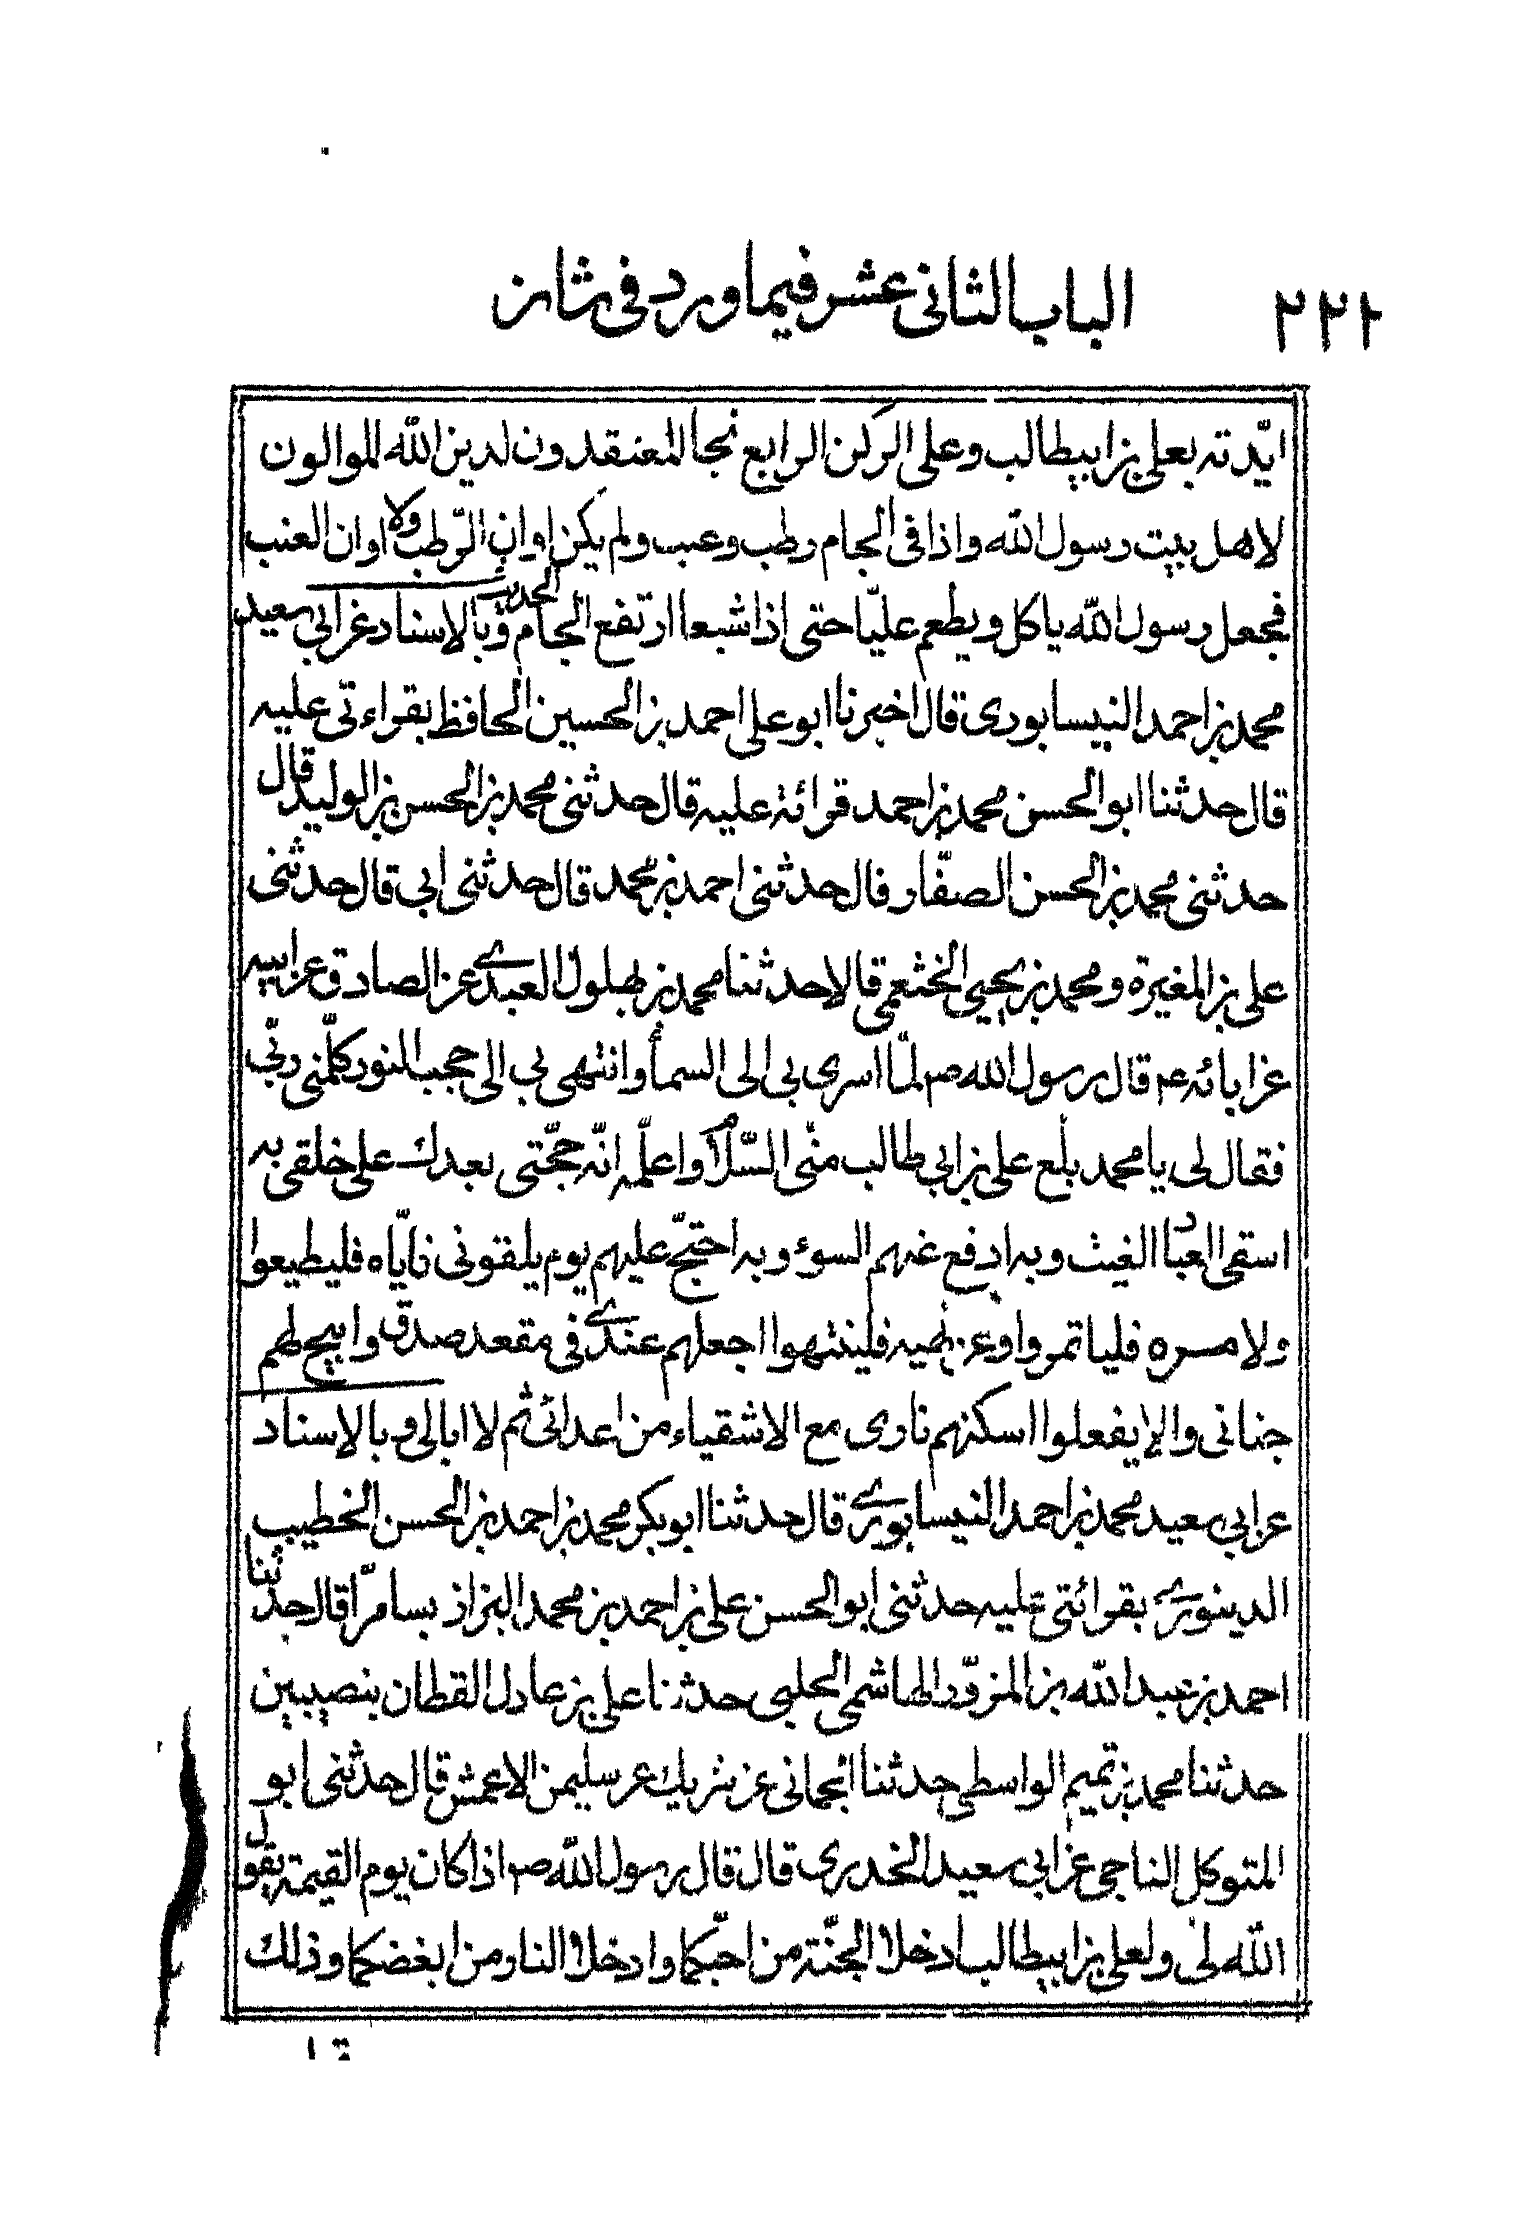 ٢٢١ الباب الثانى عشر فيما ورد فى شان
ايّدته بعلى بن ابيطالب وعلى الركن الرابع نجا المعتقدون لدين الله الموالون
لاهل بيت رسول الله واذا فى الجام رطب وعنب ولم يكن اوان الرّطب ولا اوان العنب
فجعل رسول الله ياكل ويطعم عليّا حتى اذا شبعا ارتفع الجام الحديث وبالاسناد عن ابى سعيد
محمد بن احمد النيسابورى قال اخبرنا ابو على احمد بن الحسين الحافظ بقراءتى عليه
قال حدثنا ابو الحسن محمد بن احمد قرائة عليه قال حدثنى محمد بن الحسن بن الوليد قال
حدثنى محمد بن الحسن الصفّار قال حدثنى احمد بن محمد قال حدثنى ابى قال حدثنى
على بن المغيرة ومحمد بن يحيى الخثعمى قالا حدثنا محمد بن بهلول العبدى عن الصادق عن ابيه
عن ابائه ع قال رسول الله ص لمّا اسرى بى الى السمأ وانتهى بى الى حجب النور كلّمنى ربّى
فقال لى يا محمد بلّغ على بن ابى طالب منّى السّلام واعلمه انّه حجّتى بعدك على خلقى به
اسقى العباد الغيث وبه ادفع عنهم السوء وبه احتجّ عليهم يوم يلقونى فايّاه فليطيعوا
ولامره فلياتمروا وعن نهيه فلينتهوا اجعلهم عندى فى مقعد صدق وابيح لهم
جنانى والا يفعلوا اسكنهم نارى مع الاشقياء من اعدائى ثم لا ابالى وبالاسناد
عن ابى سعيد محمد بن احمد النيسابورى قال حدثنا ابو بكر محمد بن احمد بن الحسن الخطيب
الدينورى بقرائتى عليه حدثنى ابو الحسن على بن احمد بن محمد البزاز بسامرّا قال حدثنا
احمد بن عبد الله بن المزوّد الهاشمى الحلبى حدثنا على بن عادل القطان بنصيبين
حدثنا محمد بن تميم الواسطى حدثنا الحمانى عن شريك عن سليمن الاعمش قال حدثنى ابو
المتوكل الناجى عن ابى سعيد الخدرى قال قال رسول الله ص اذا كان يوم القيمة يقول
الله لى ولعلى بن ابيطالب ادخلا الجنّة من احبّكما وادخلا النار من ابغضكما وذلك